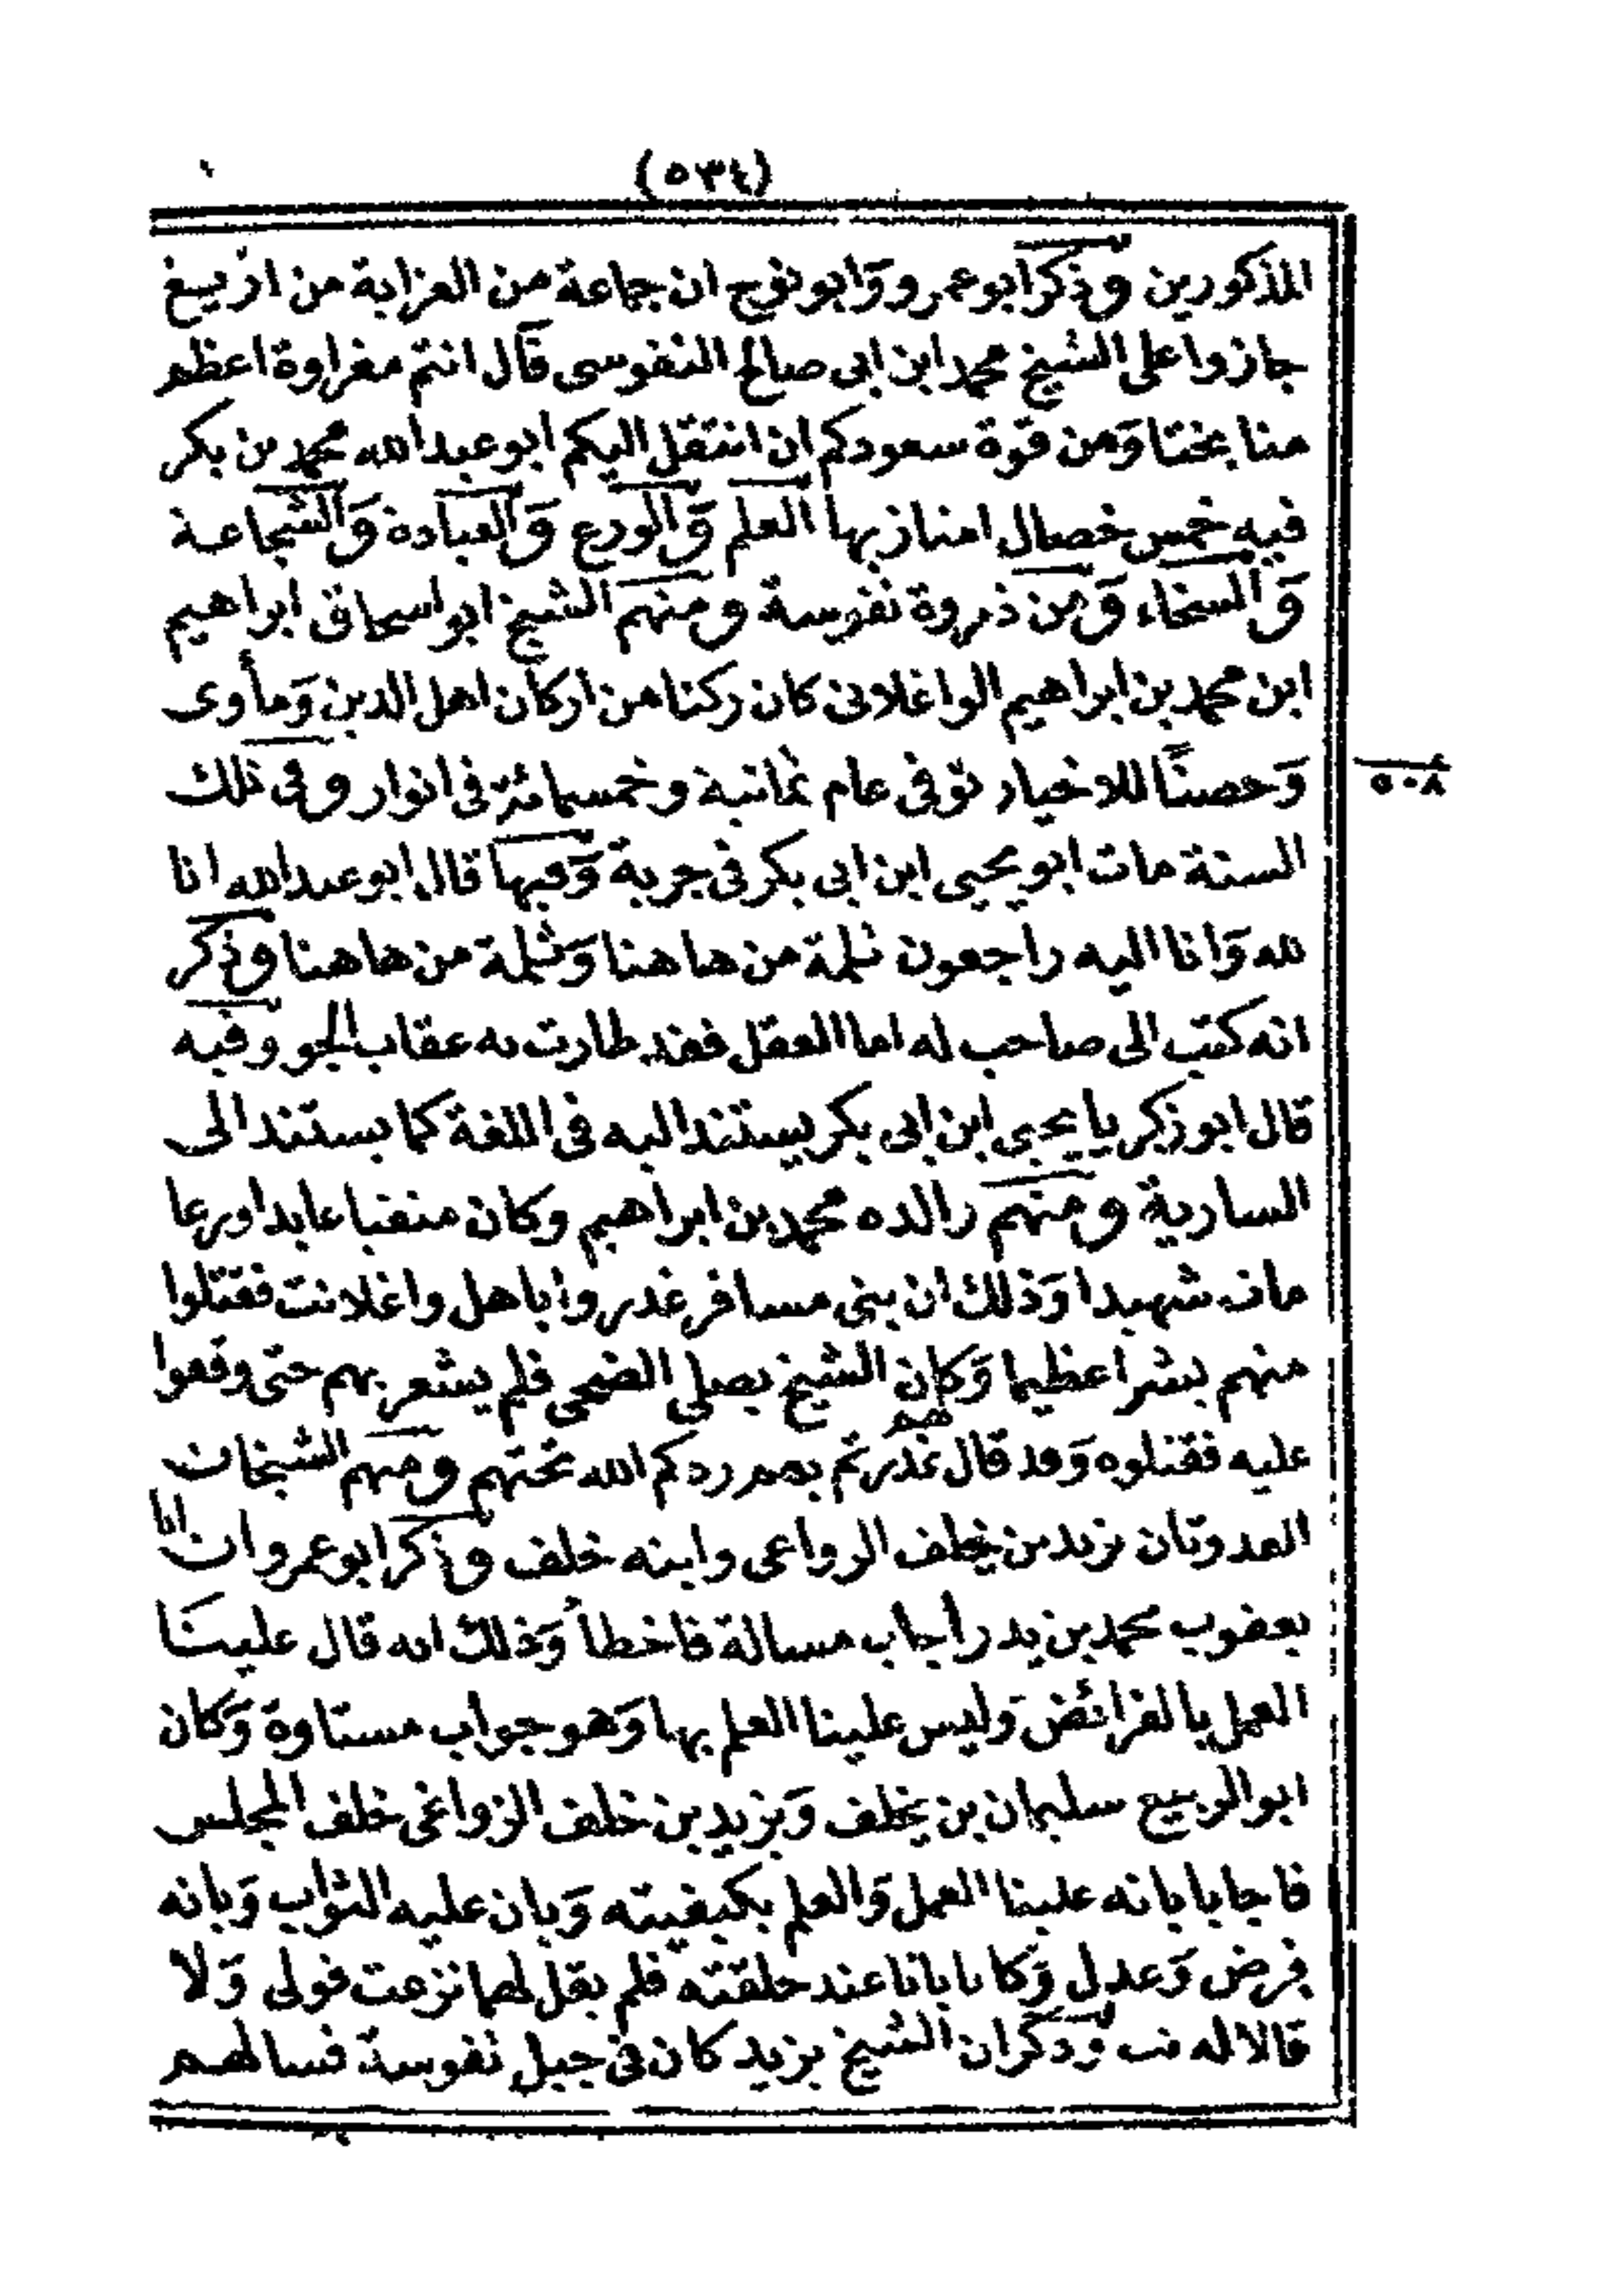 (٥٣٤)
المذكورين وذكر ابو عمرو وَابو نوح ان جماعة من العزابة من ازيغ
جازوا على الشيخ محمد ابن ابى صالح النفوسى قال انتم مغراوة اعظم
منا بختا وَمن قوة سعودكم ان انتقل اليكم ابو عبد الله محمد بن بكر
فيه خمس خصال امتاز بها العلم وَالورع وَالعبادة وَالشجاعة
وَالسخاء وَمن ذروة نفوسة ومنهم الشيخ ابو اسحاق ابراهيم
ابن محمد بن ابراهيم الواغلانى كان ركنا من اركان اهل الدين وَمأوى
وَحصنًا للاخيار توفى عام ثمانية وخمسمائة فى انوار وفى ذلك
٥٠٨
السنة مات ابو يحيى ابن ابى بكر فى جربة وَفيها قال ابو عبد الله انا
لله وَانا اليه راجعون ثلمة من هاهنا وَثلمة من هاهنا وذكر
انه كتب الى صاحب له اما العقل فقد طارت به عقاب الجو وفيه
قال ابو زكرياء يحيى ابن ابى بكر يستند اليه فى اللغة كما يستند الى
السارية ومنهم والده محمد بن ابراهيم وكان منفيا عابدا ورعا
مات شهيدا وَذلك ان بنى مسافر غدروا باهل واغلانت فقتلوا
منهم بشرا عظيما وَكان الشيخ يصلى الضحى فلم يشعر بهم حتى وقعوا
عليه فقتلوه وَقد قال غدرتم بهم ردكم الله تحتهم ومنهم الشيخان
العدوتان يزيد بن يخلف الزواغى وابنه خلف وذكر ابو عمرو ان ابا
يعقوب محمد بن يدر اجاب مسالة فاخطأ وَذلك انه قال علينَا
العمل بالفرائض وَليس علينا العلم بها وَهو جواب مستاوة وَكان
ابو الربيع سليمان بن يخلف وَيزيد بن خلف الزواغى خلف المجلس
فاجابا بانه علينا العمل وَالعلم بكيفيته وَبان عليه الثواب وَبانه
فرض وَعدل وَكانا باتا عند حلقته فلم يقل لهما نزعت قولى وَلا
قالا له تب وَذكر ان الشيخ يزيد كان فى جبل نفوسة فسالهم